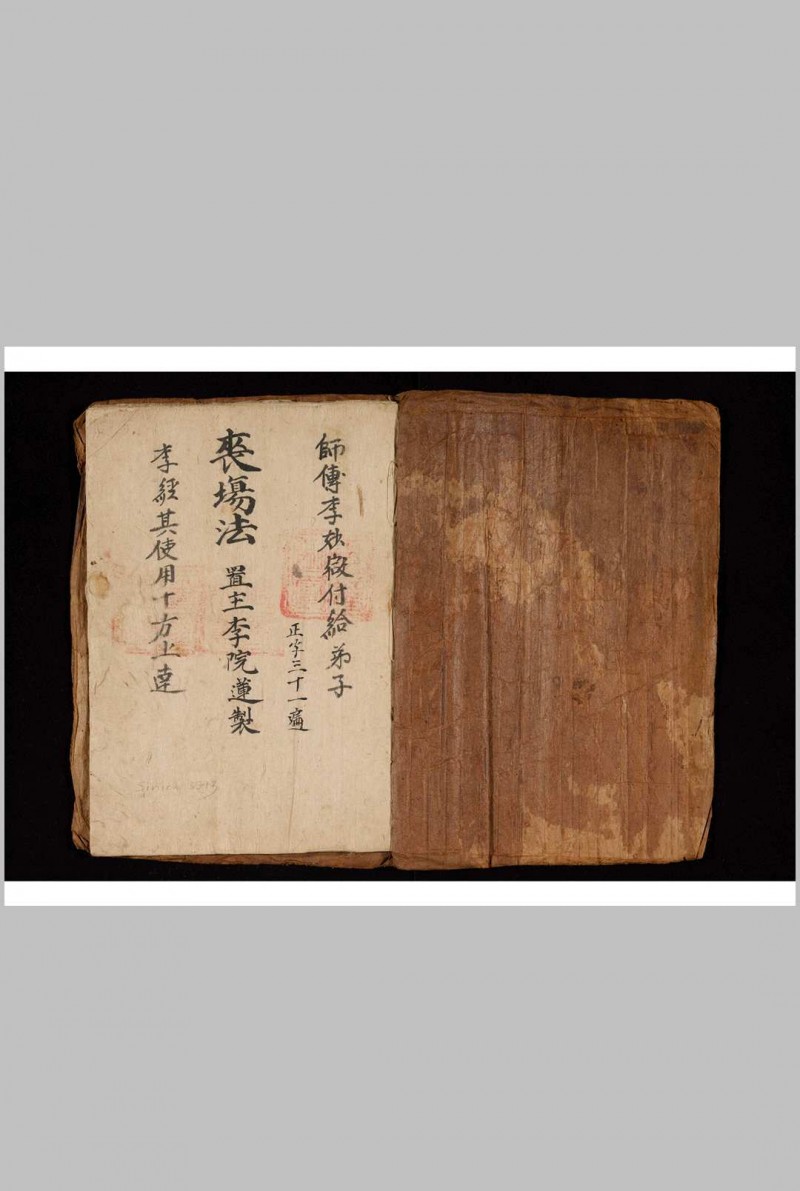 師傅李妙微付給弟子
正字三十一遍
喪塲法 置主李院蓮製
李經其使用十方上達